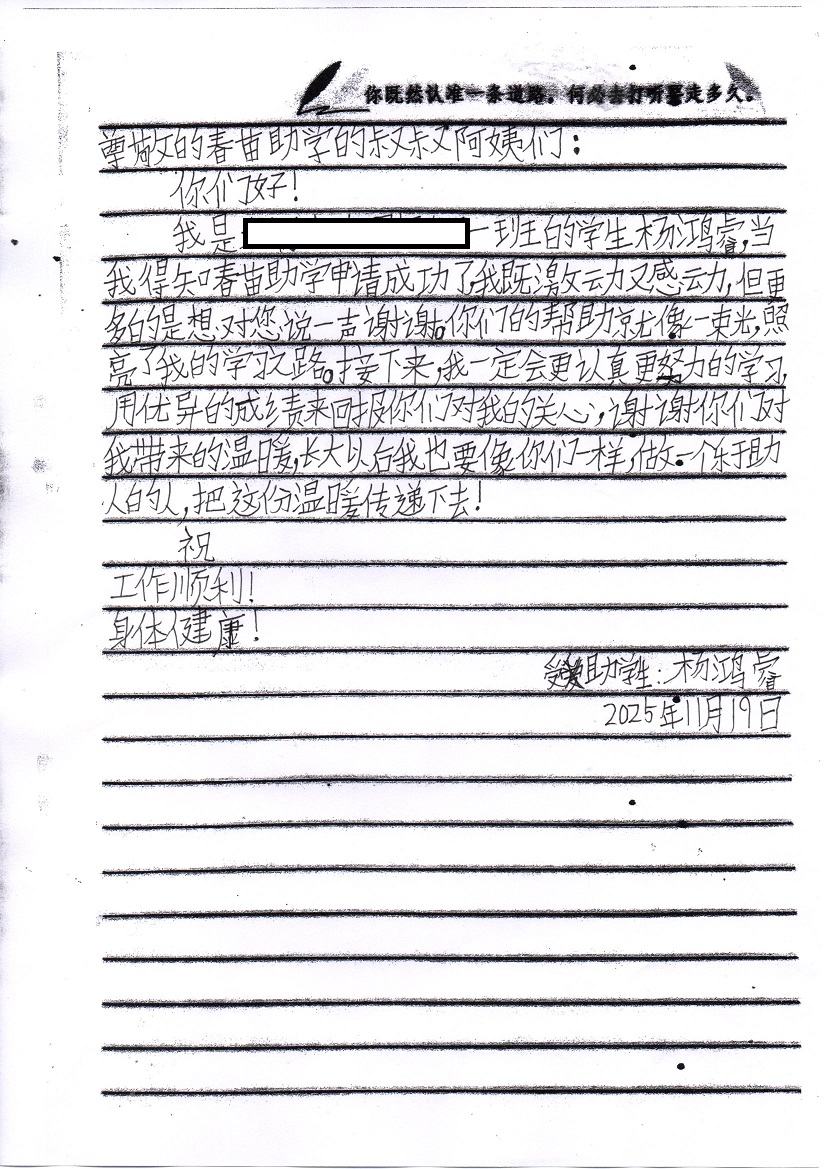 你既然认准一条道路，何必去打听要走多久。
尊敬的春苗助学的叔叔阿姨们：
你们好！
我是一班的学生杨鸿睿，当
我得知春苗助学申请成功了，我既激动又感动，但更
多的是想对您说一声谢谢。你们的帮助就像一束光，照
亮了我的学习之路。接下来，我一定会更认真更努力的学习，
用优异的成绩来回报你们对我的关心，谢谢你们对
我带来的温暖，长大以后我也要像你们一样，做一个乐于助
人的人，把这份温暖传递下去！
祝
工作顺利！
身体健康！
受助学生：杨鸿睿
2025年11月19日